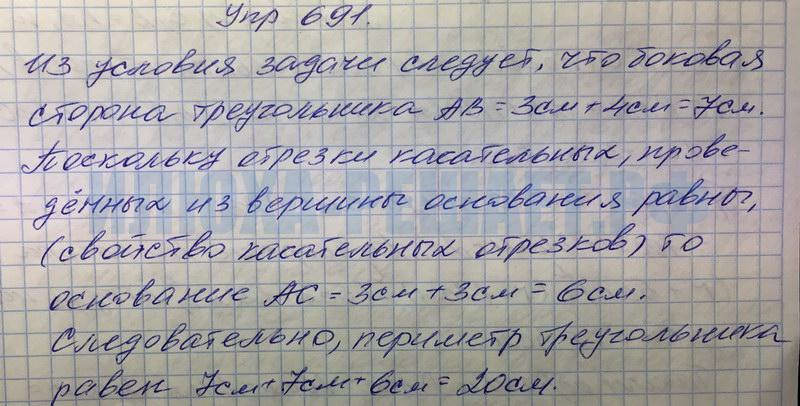 Упр 691.
Из условия задачи следует, что боковая
сторона треугольника АВ = 3см + 4см = 7см.
Поскольку отрезки касательных, прове-
дённых из вершины основания равны,
(свойство касательных отрезков) то
основание АС = 3см + 3см = 6см.
Следовательно, периметр треугольника
равен 7см + 7см + 6см = 20см.